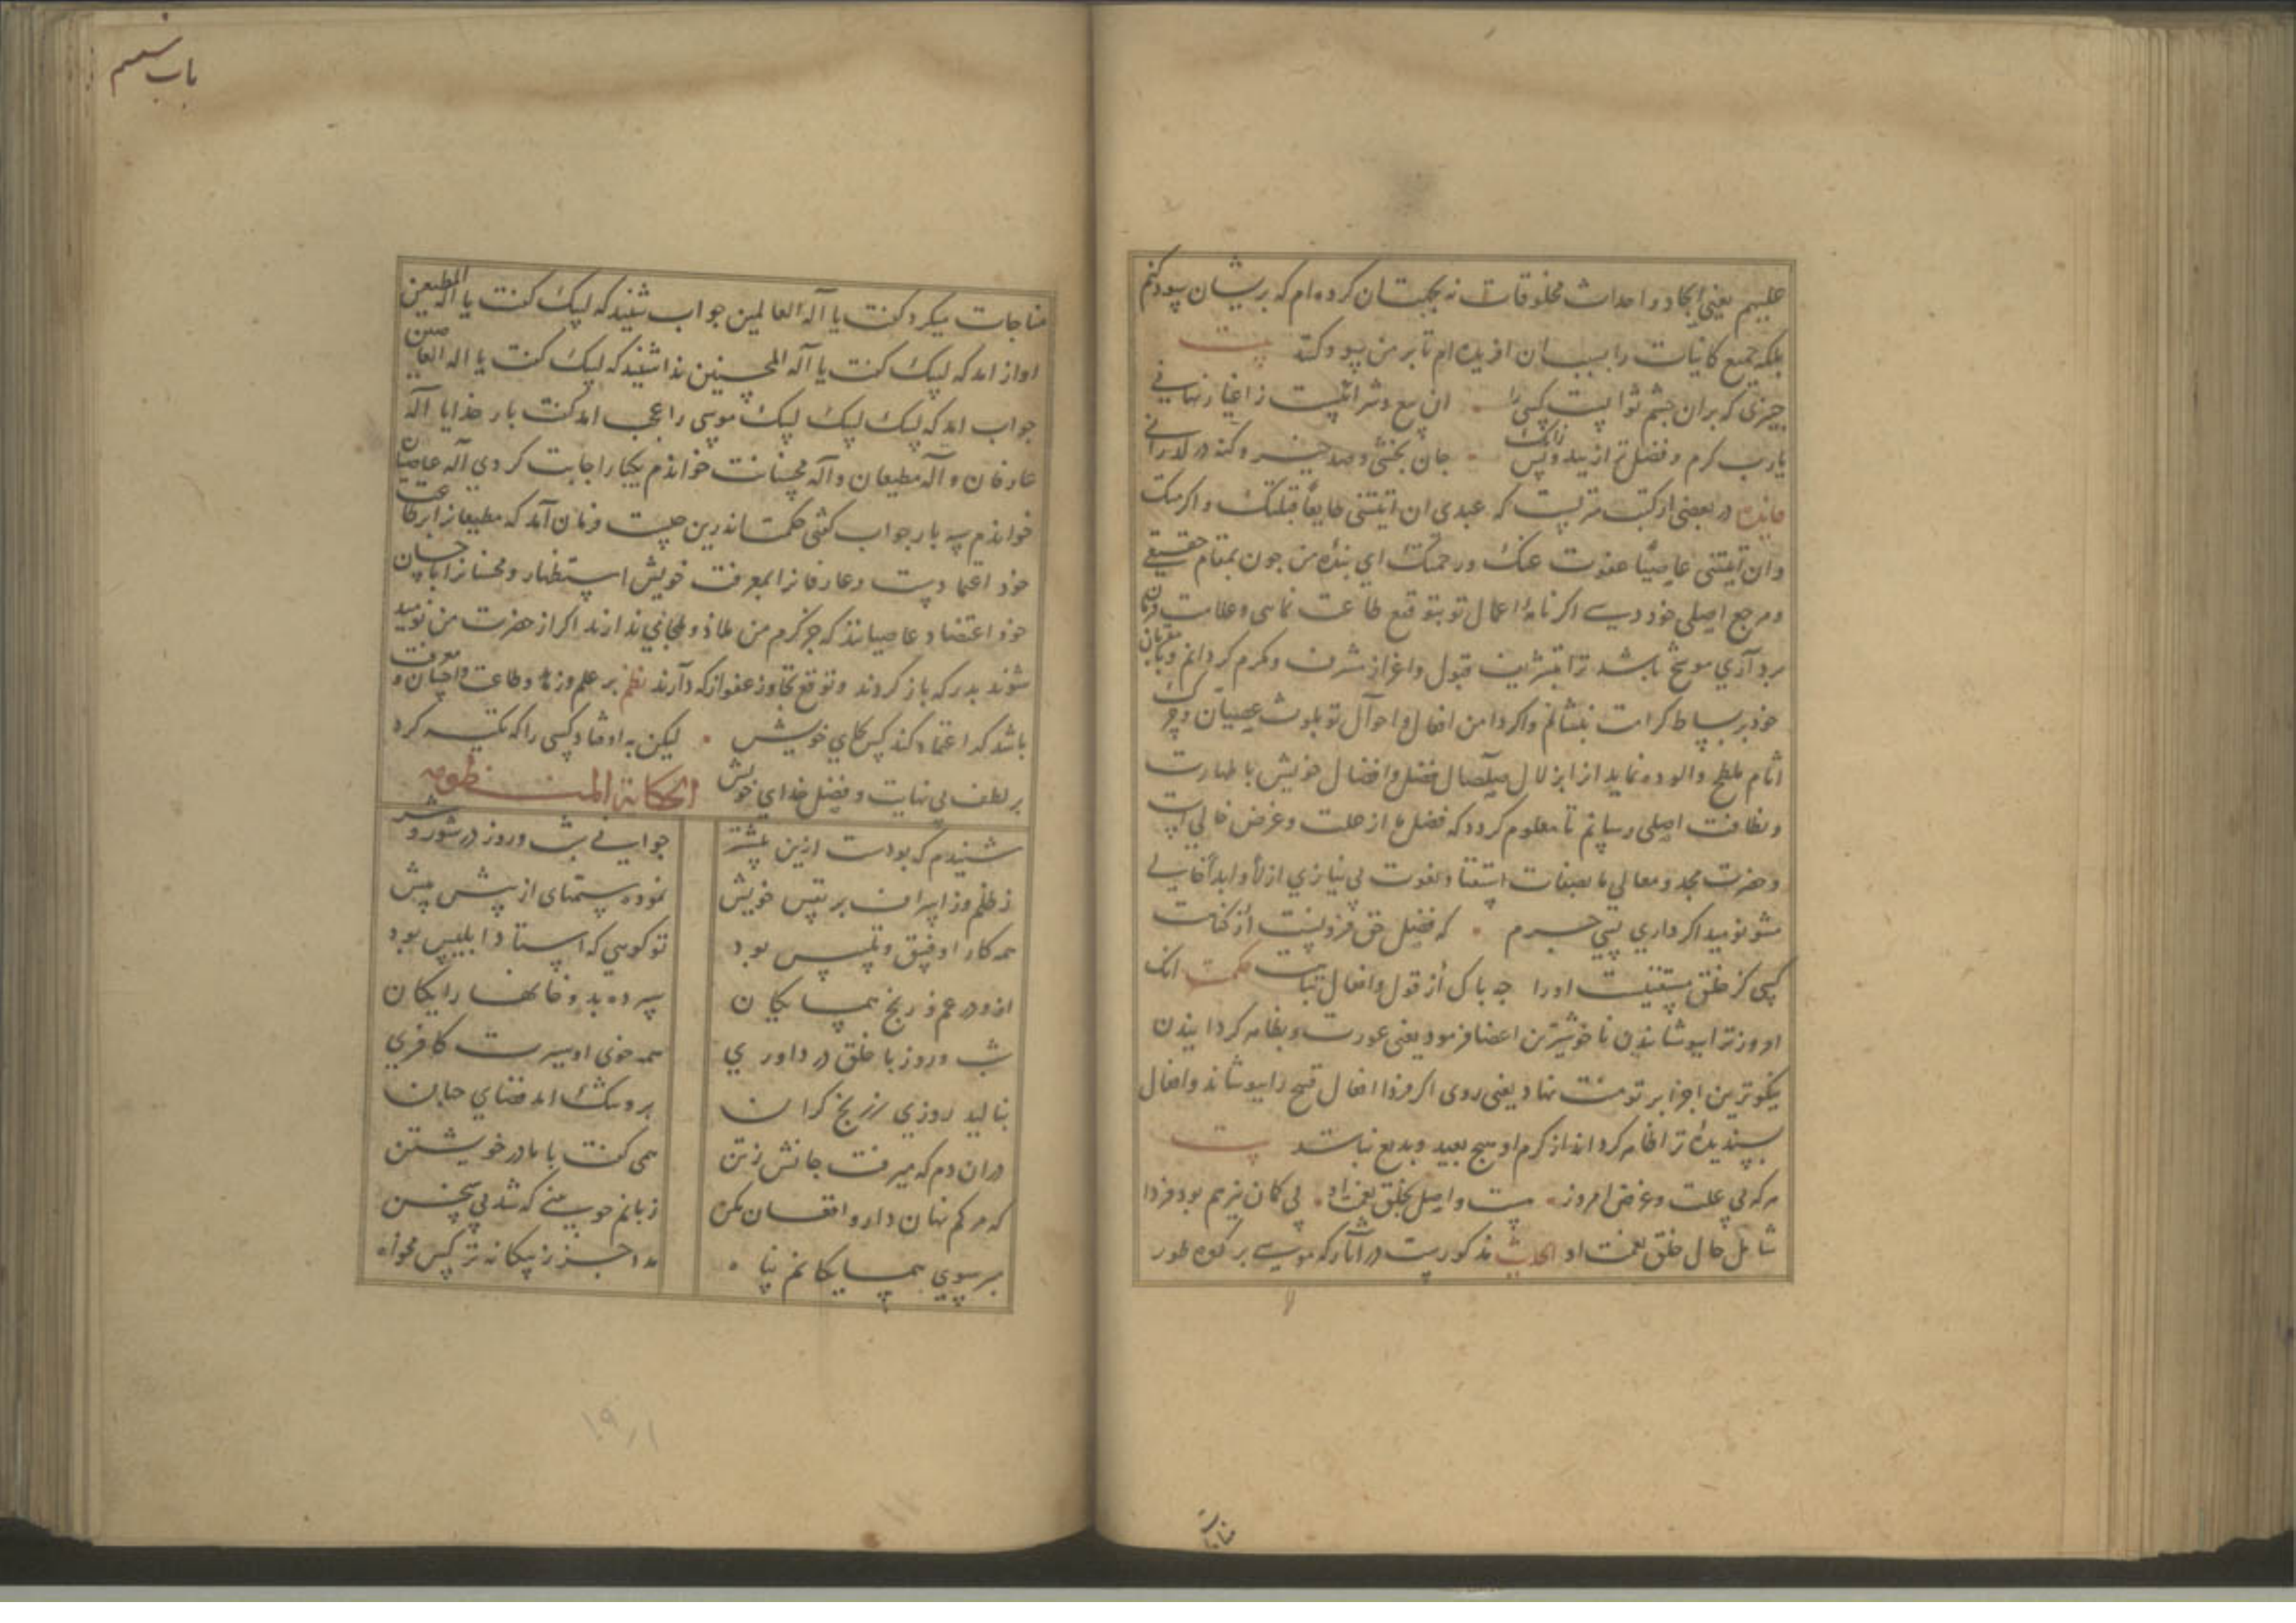 علیهم یعنی ایجاد و احداث مخلوقات نه بجهت آن کرده ام که بریشان سود کنم
بلکه جمیع کاینات را بسبب آن افریده ام تا بر من سود کنند بیت
چیزی که بران چشم ثوابیست کسی را ان بیع و شرائیست ز اغیار نهانی
یارب کرم و فضل تو از بنده
فایده در بعضی از کتب مترلست که عبدی ان اتیتنی طایعًا قبلتک و اکرمتک
وان اتیتنی عاصیًا عفوت عنک ورحمتک ای بنده من چون بمقام حقیقی
و مرجع اصلی خود رسی اگر نامهٔ اعمال تو بتوقیع طاعت نمائی و علامت
برداری موشح باشد ترا بتشریف قبول و اعزاز مشرف و مکرم کردانم
خود بر بساط کرامت بنشانم واکر دامن افعال و احوال تو بلوث عصیان و
اثام ملطخ والوده نماید از ابر زلال فضل و افضال خویش با طهارت
ونظافت اصلی رسانم تا معلوم کردد که فضل ما از علت و غرض خالی است
و حضرت مجد و معالی ما بصفات استغنا و نعوت بی نیازی ازلاً و ابداً
مشو نومید اکر داری بسی جرم که فضل حق فزونست از کناهت
کسی کز خلق مستغنیست اورا چه باک از قول و افعال تباهت حکمت انک
امروز ترا بپوشانیدن ناخوشترین اعضا فرمود یعنی عورت و بظاهر کردانیدن
نیکوترین اجزا بر تو منت نهاد یعنی روی اکر فردا افعال قبیح را بپوشاند وافعال
پسندیدهٔ ترا ظاهر کرداند از کرم او هیچ بعید و بدیع نباشد بیت
هرکه بی علت و غرض امروز هست واصل بخلق نعمت او بی کمان نیز هم بود فردا
شامل حال خلق نعمت او الحدیث مذکورست در اثار که موسی بر کوه طور
مناجات
باب ششم
مناجات میکرد کفت یا اله العالمین جواب شنید که لبیک کفت یا اله المطیعین
اواز امد که لبیک کفت یا اله المحسنین ندا شنید که لبیک کفت یا اله العاصین
جواب امد که لبیک لبیک لبیک موسی را عجب امد کفت بار خدایا اله
عارفان و اله مطیعان و اله محسنانت خواندم یکبار اجابت کردی اله عاصیان
خواندم سه بار جواب کفتی حکمت اندرین چیست فرمان آمد که مطیعانرا بر طاعت
خود اعتمادست و عارفانرا بمعرفت خویش استظهار و محسنانرا باحسان
خود اعتضاد عاصیانند که جز کرم من ملاذ و ملجائی ندارند اکر از حضرت من نومید
شوند بدر که باز کردند و توقع تجاوز و عفو از که دارند نظم بر علم و زهد و طاعت و احسان و معرفت
باشد که اعتماد کند کس بجای خویش لیکن به اوفتاد کسی را که تکیه کرد
بر لطف بی نهایت و فضل خدای خویش الحکایة المنظومه
شنیدم که بودست ازین پیشتر جوانی شب و روز در شور و شر
ز ظلم و ز ایذا بر نفس خویش نموده ستمهای از پیش بیش
همه کار او فسق و تلبیس بود تو کویی که استاد ابلیس بود
ازو در غم و رنج همسایکان سپرده بدو خانها رایکان
شب و روز با خلق در داوری همه خوی او سیرت کافری
بنالید روزی ز رنج کران برو تنک امد فضای جهان
دران دم که میرفت جانش ز تن همی کفت با مادر خویشتن
که مرکم نهان دار و افغان مکن زبانم چو بینی که شد بی سخن
بر سوی همسایکانم ز بیکانه ترکس مخواه